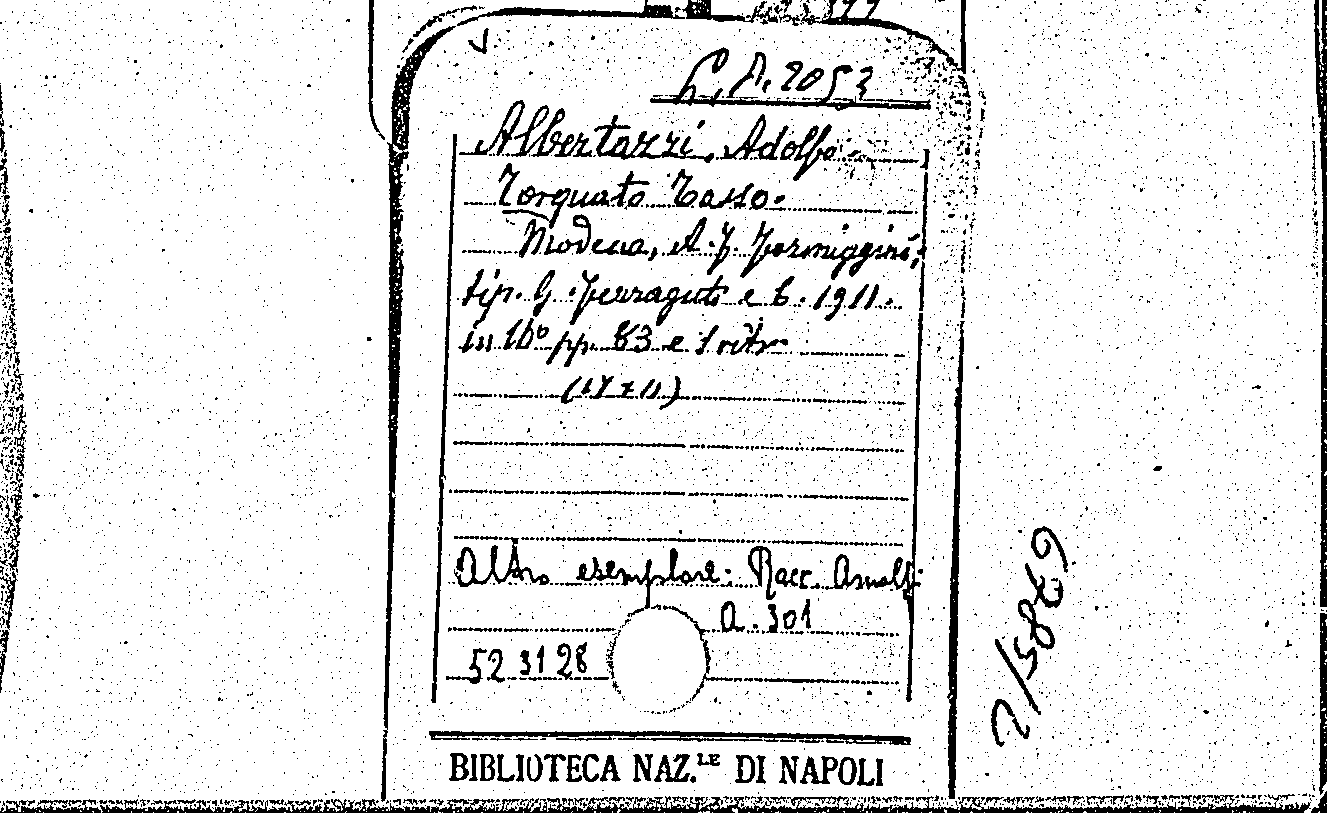 L. P. 2053
Albertazzi, Adolfo.
Torquato Tasso.
Modena, A. F. Formiggini,
tip. G. Ferraguti e C. 1911.
in 16° pp. 83 e 1 ritr.
Altro esemplare: Racc. Amalfi
A. 301
523128
BIBLIOTECA NAZ.LE DI NAPOLI